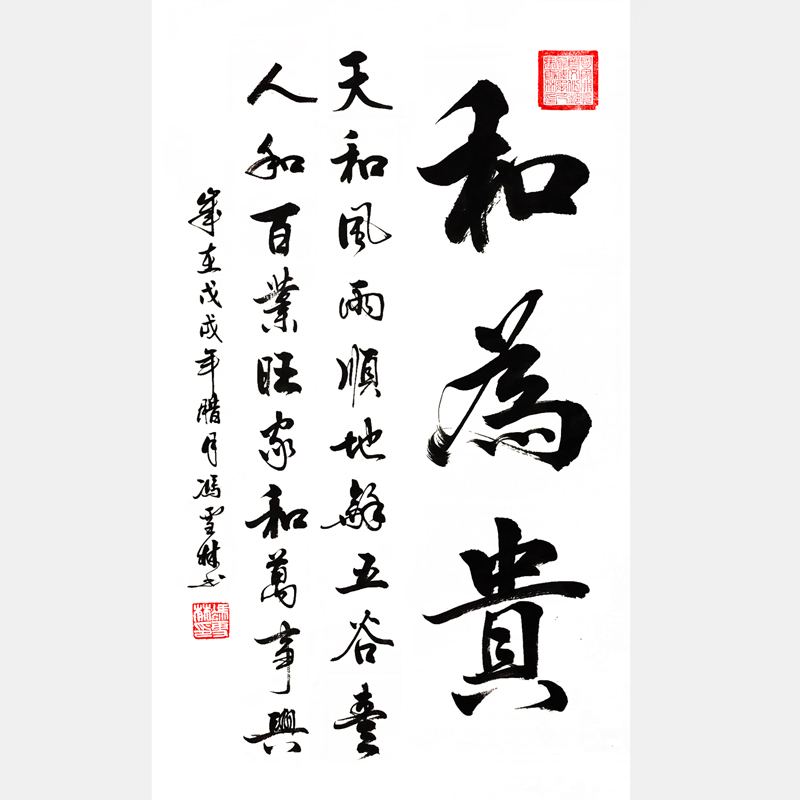 和為貴
天和風雨順地龢五谷豐
人和百業旺家和萬事興
歲在戊戌年腊月馮雲林书